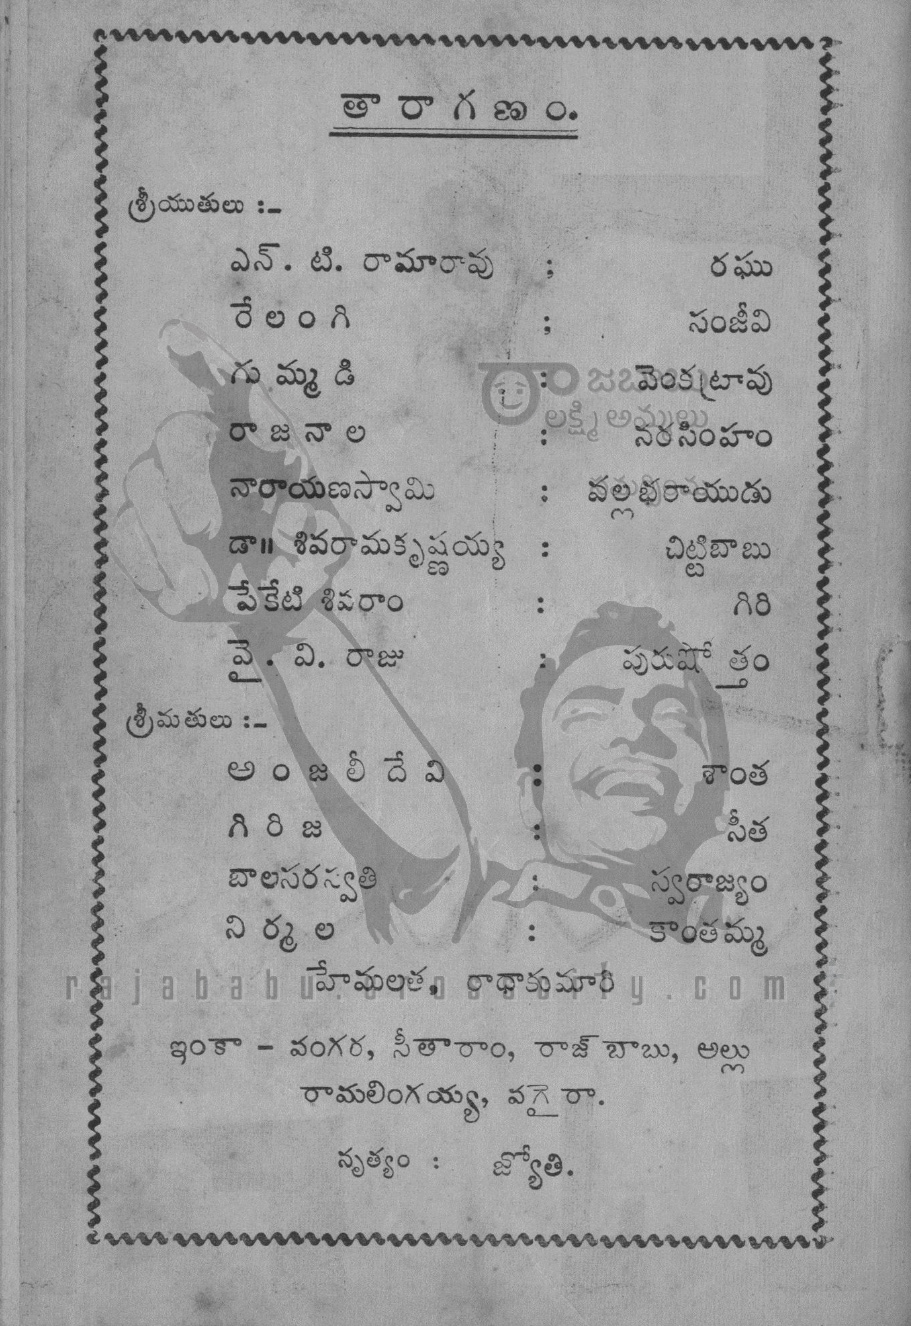 తారాగణం.
శ్రీయుతులు :-
ఎన్. టి. రామారావు ; రఘు
రేలంగి ; సంజీవి
గుమ్మడి : వెంకట్రావు
రాజనాల : నరసింహం
నారాయణస్వామి : వల్లభరాయుడు
డా॥ శివరామకృష్ణయ్య : చిట్టిబాబు
పేకేటి శివరాం : గిరి
వై. వి. రాజు : పురుషోత్తం
శ్రీమతులు :-
అంజలీదేవి : శాంత
గిరిజ : సీత
బాలసరస్వతి : స్వరాజ్యం
నిర్మల : కాంతమ్మ
హేమలత, రాధాకుమారి
ఇంకా - వంగర, సీతారాం, రాజ్‌బాబు, అల్లు
రామలింగయ్య, వగైరా.
నృత్యం : జ్యోతి.